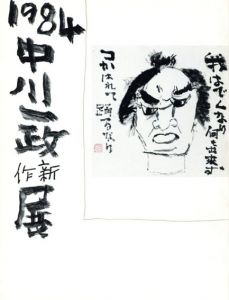 1984
中川一政
新作
展
我はでくなり
つかはれて踊るなり